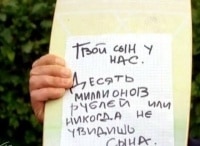 Твой сын у
нас.
Десять
миллионов
рублей или
никогда не
увидишь
сына.